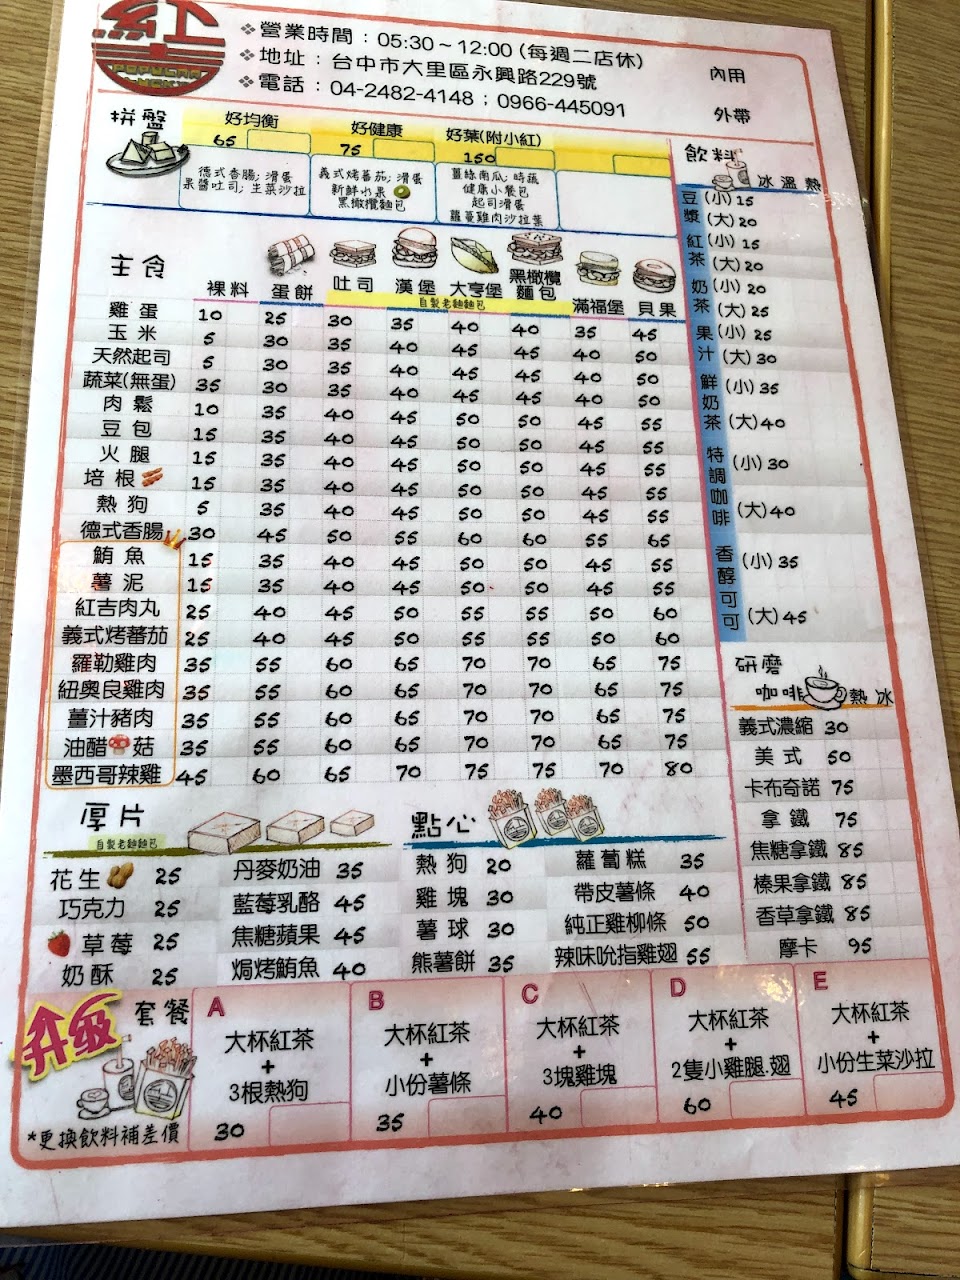 紅
POPULAR
❖營業時間：05:30～12:00 (每週二店休)
❖地址：台中市大里區永興路229號
❖電話：04-2482-4148；0966-445091
內用
外帶
拼盤
好均衡 65
好健康 75
好葉(附小紅) 150
德式香腸; 滑蛋
果醬吐司; 生菜沙拉
義式烤蕃茄; 滑蛋
新鮮水果
黑橄欖麵包
薑綠南瓜; 時蔬
健康小餐包
起司滑蛋
蘿蔓雞肉沙拉葉
主食
裸料 蛋餅 吐司 漢堡 大亨堡 黑橄欖麵包 滿福堡 貝果
自製老麵麵包
雞蛋 10 25 30 35 40 40 35 45
玉米 5 30 35 40 45 45 40 50
天然起司 5 30 35 40 45 45 40 50
蔬菜(無蛋) 35 30 35 40 45 45 40 50
肉鬆 10 35 40 45 50 50 45 55
豆包 15 35 40 45 50 50 45 55
火腿 15 35 40 45 50 50 45 55
培根 15 35 40 45 50 50 45 55
熱狗 5 35 40 45 50 50 45 55
德式香腸 30 45 50 55 60 60 55 65
鮪魚 15 35 40 45 50 50 45 55
薯泥 15 35 40 45 50 50 45 55
紅吉肉丸 25 40 45 50 55 55 50 60
義式烤蕃茄 25 40 45 50 55 55 50 60
羅勒雞肉 35 55 60 65 70 70 65 75
紐奧良雞肉 35 55 60 65 70 70 65 75
薑汁豬肉 35 55 60 65 70 70 65 75
油醋菇 35 55 60 65 70 70 65 75
墨西哥辣雞 45 60 65 70 75 75 70 80
飲料
冰 溫 熱
豆漿 (小) 15
(大) 20
紅茶 (小) 15
(大) 20
奶茶 (小) 20
(大) 25
果汁 (小) 25
(大) 30
鮮奶茶 (小) 35
(大) 40
特調咖啡 (小) 30
(大) 40
香醇可可 (小) 35
(大) 45
研磨
咖啡 熱 冰
義式濃縮 30
美式 50
卡布奇諾 75
拿鐵 75
焦糖拿鐵 85
榛果拿鐵 85
香草拿鐵 85
摩卡 95
厚片
自製老麵麵包
花生 25
巧克力 25
草莓 25
奶酥 25
丹麥奶油 35
藍莓乳酪 45
焦糖蘋果 45
焗烤鮪魚 40
點心
熱狗 20
雞塊 30
薯球 30
熊薯餅 35
蘿蔔糕 35
帶皮薯條 40
純正雞柳條 50
辣味吮指雞翅 55
升級
套餐
*更換飲料補差價
A
大杯紅茶
+
3根熱狗
30
B
大杯紅茶
+
小份薯條
35
C
大杯紅茶
+
3塊雞塊
40
D
大杯紅茶
+
2隻小雞腿.翅
60
E
大杯紅茶
+
小份生菜沙拉
45